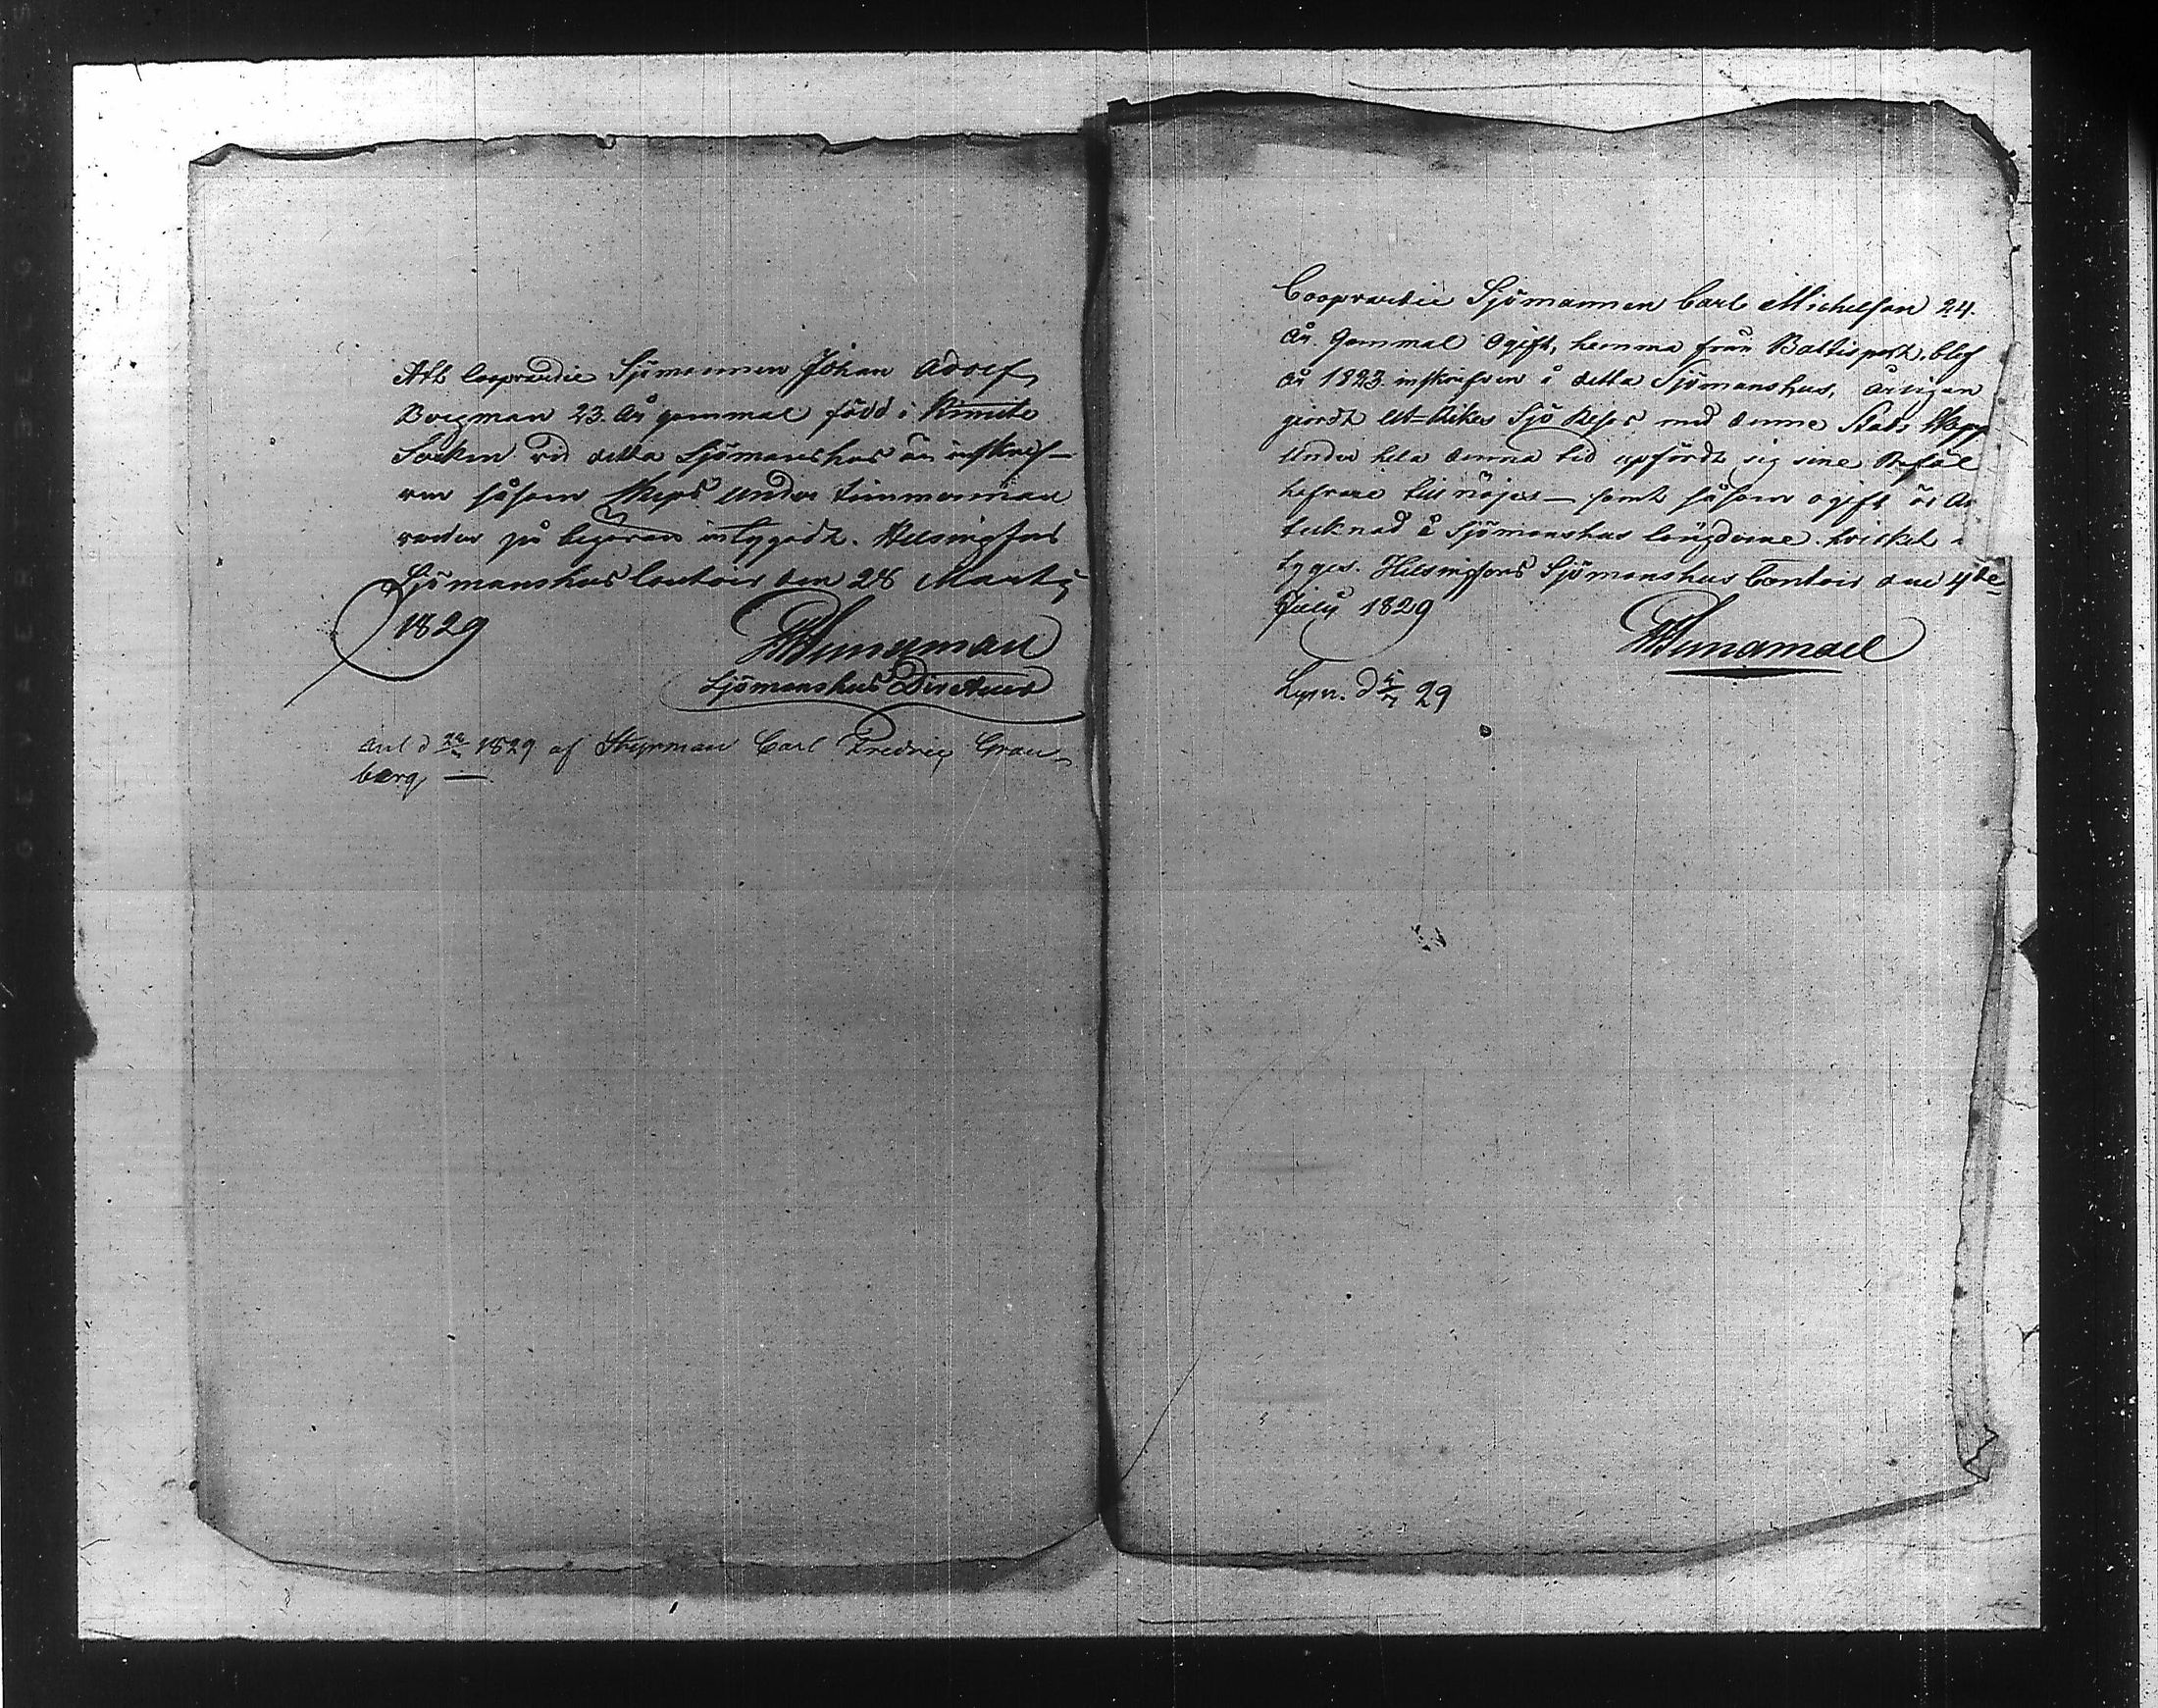 Att Coopvaerdie Sjömannen Johan Adolf
Borgman 23. År gammal född i Kimito
Socken vid detta Sjömanshus är inskrif-
ven såsom Skeps under timmerman
varder på begäran intygadt. Helsingfors
Sjömanshus Contoir den 28 Martii
1829
Sjömanshus Directeur
Anl d 1829 af Styrman Carl Fredric Gran-
berg
Coopvardie Sjömannen Carl Michelson 24.
År gammal Ogift, hemma från Baltisport, blef
År 1823 inskrefven i detta Sjömanshus, årligen
giordt Ut-Rikes Sjö Resor med denne Stads Skepp
Under hela denna tid upfördt sig sine Befäl
hafvare till nöjes — samt såsom ogift är An
tecknad å Sjömanshus längderne. hvilket
tyges. Helsingfors Sjömanshus Contoir den 4de
July 1829
29